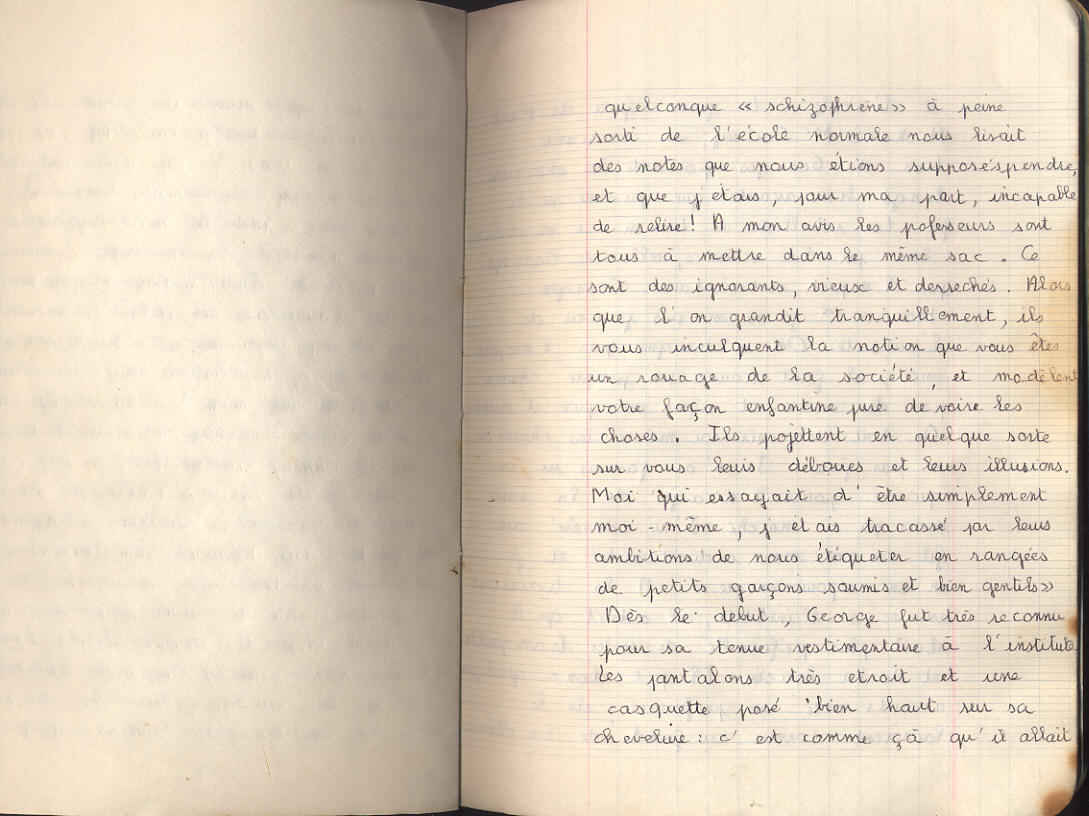 quelconque « schizophrène» à peine
sorti de l'école normale nous lisait
des notes que nous étions supposés prendre,
et que j'étais, pour ma part, incapable
de relire! A mon avis les pofesseurs sont
tous à mettre dans le même sac. Ce
sont des ignorants, vieux et dessechés. Alors
que l'on grandit tranquillement, ils
vous inculquent la notion que vous êtes
un rouage de la société, et modèlent
votre façon enfantine pure de voire les
choses. Ils pojettent en quelque sorte
sur vous leurs déboires et leurs illusions.
Moi qui essayait d'être simplement
moi-même, j'étais tracassé par leurs
ambitions de nous étiqueter en rangées
de petits garçons soumis et bien gentils»
Dès le debut, George fut très reconnu
pour sa tenue vestimentaire à l'institute
Les pantalons très etroit et une
casquette posé bien haut sur sa
chevelure: c'est comme çà qu'il allait